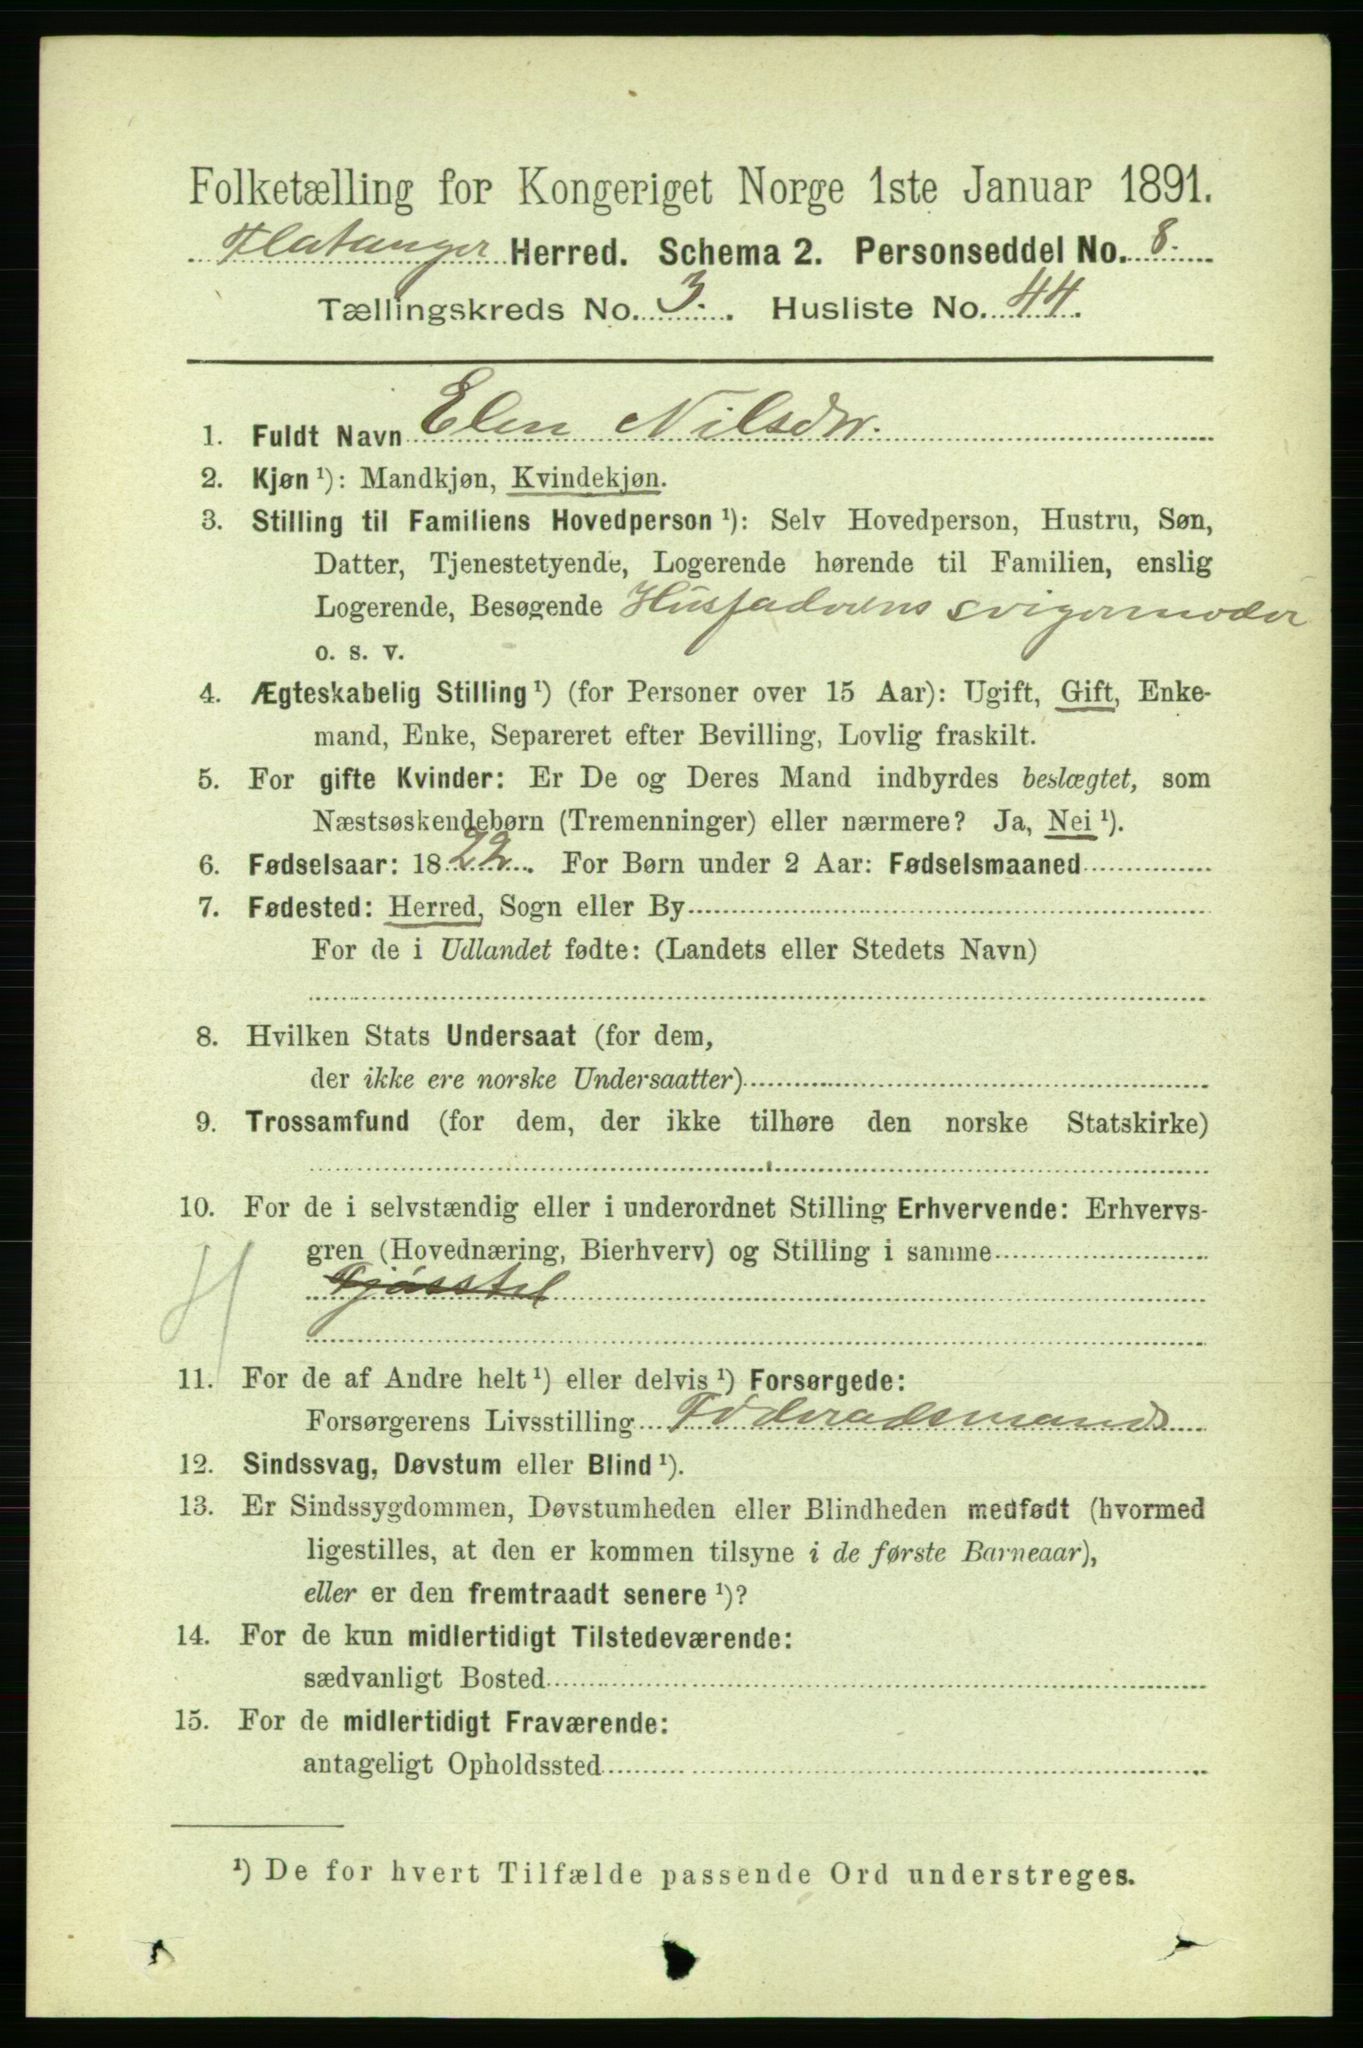 Folketælling for Kongeriget Norge 1ste Januar 1891.
Flatanger Herred. Schema 2. Personseddel No. 8.
Tællingskreds No. 3. Husliste No. 44.
1. Fuldt Navn Elen Nilsdtr.
2. Kjøn ¹): Mandkjøn, Kvindekjøn.
3. Stilling til Familiens Hovedperson ¹): Selv Hovedperson, Hustru, Søn,
Datter, Tjenestetyende, Logerende hørende til Familien, enslig
Logerende, Besøgende Husfaderens svigermoder
o. s. v.
4. Ægteskabelig Stilling ¹) (for Personer over 15 Aar): Ugift, Gift, Enke-
mand, Enke, Separeret efter Bevilling, Lovlig fraskilt.
5. For gifte Kvinder: Er De og Deres Mand indbyrdes beslægtet, som
Næstsøskendebørn (Tremenninger) eller nærmere? Ja, Nei ¹).
6. Fødselsaar: 1822. For Børn under 2 Aar: Fødselsmaaned
7. Fødested: Herred, Sogn eller By
For de i Udlandet fødte: (Landets eller Stedets Navn)
8. Hvilken Stats Undersaat (for dem,
der ikke ere norske Undersaatter)
9. Trossamfund (for dem, der ikke tilhøre den norske Statskirke)
10. For de i selvstændig eller i underordnet Stilling Erhvervende: Erhvervs-
gren (Hovednæring, Bierhverv) og Stilling i samme
H
11. For de af Andre helt ¹) eller delvis ¹) Forsørgede:
Forsørgerens Livsstilling Føderaadsmand
12. Sindssvag, Døvstum eller Blind ¹).
13. Er Sindssygdommen, Døvstumheden eller Blindheden medfødt (hvormed
ligestilles, at den er kommen tilsyne i de første Barneaar),
eller er den fremtraadt senere ¹)?
14. For de kun midlertidigt Tilstedeværende:
sædvanligt Bosted
15. For de midlertidigt Fraværende:
antageligt Opholdssted
¹) De for hvert Tilfælde passende Ord understreges.